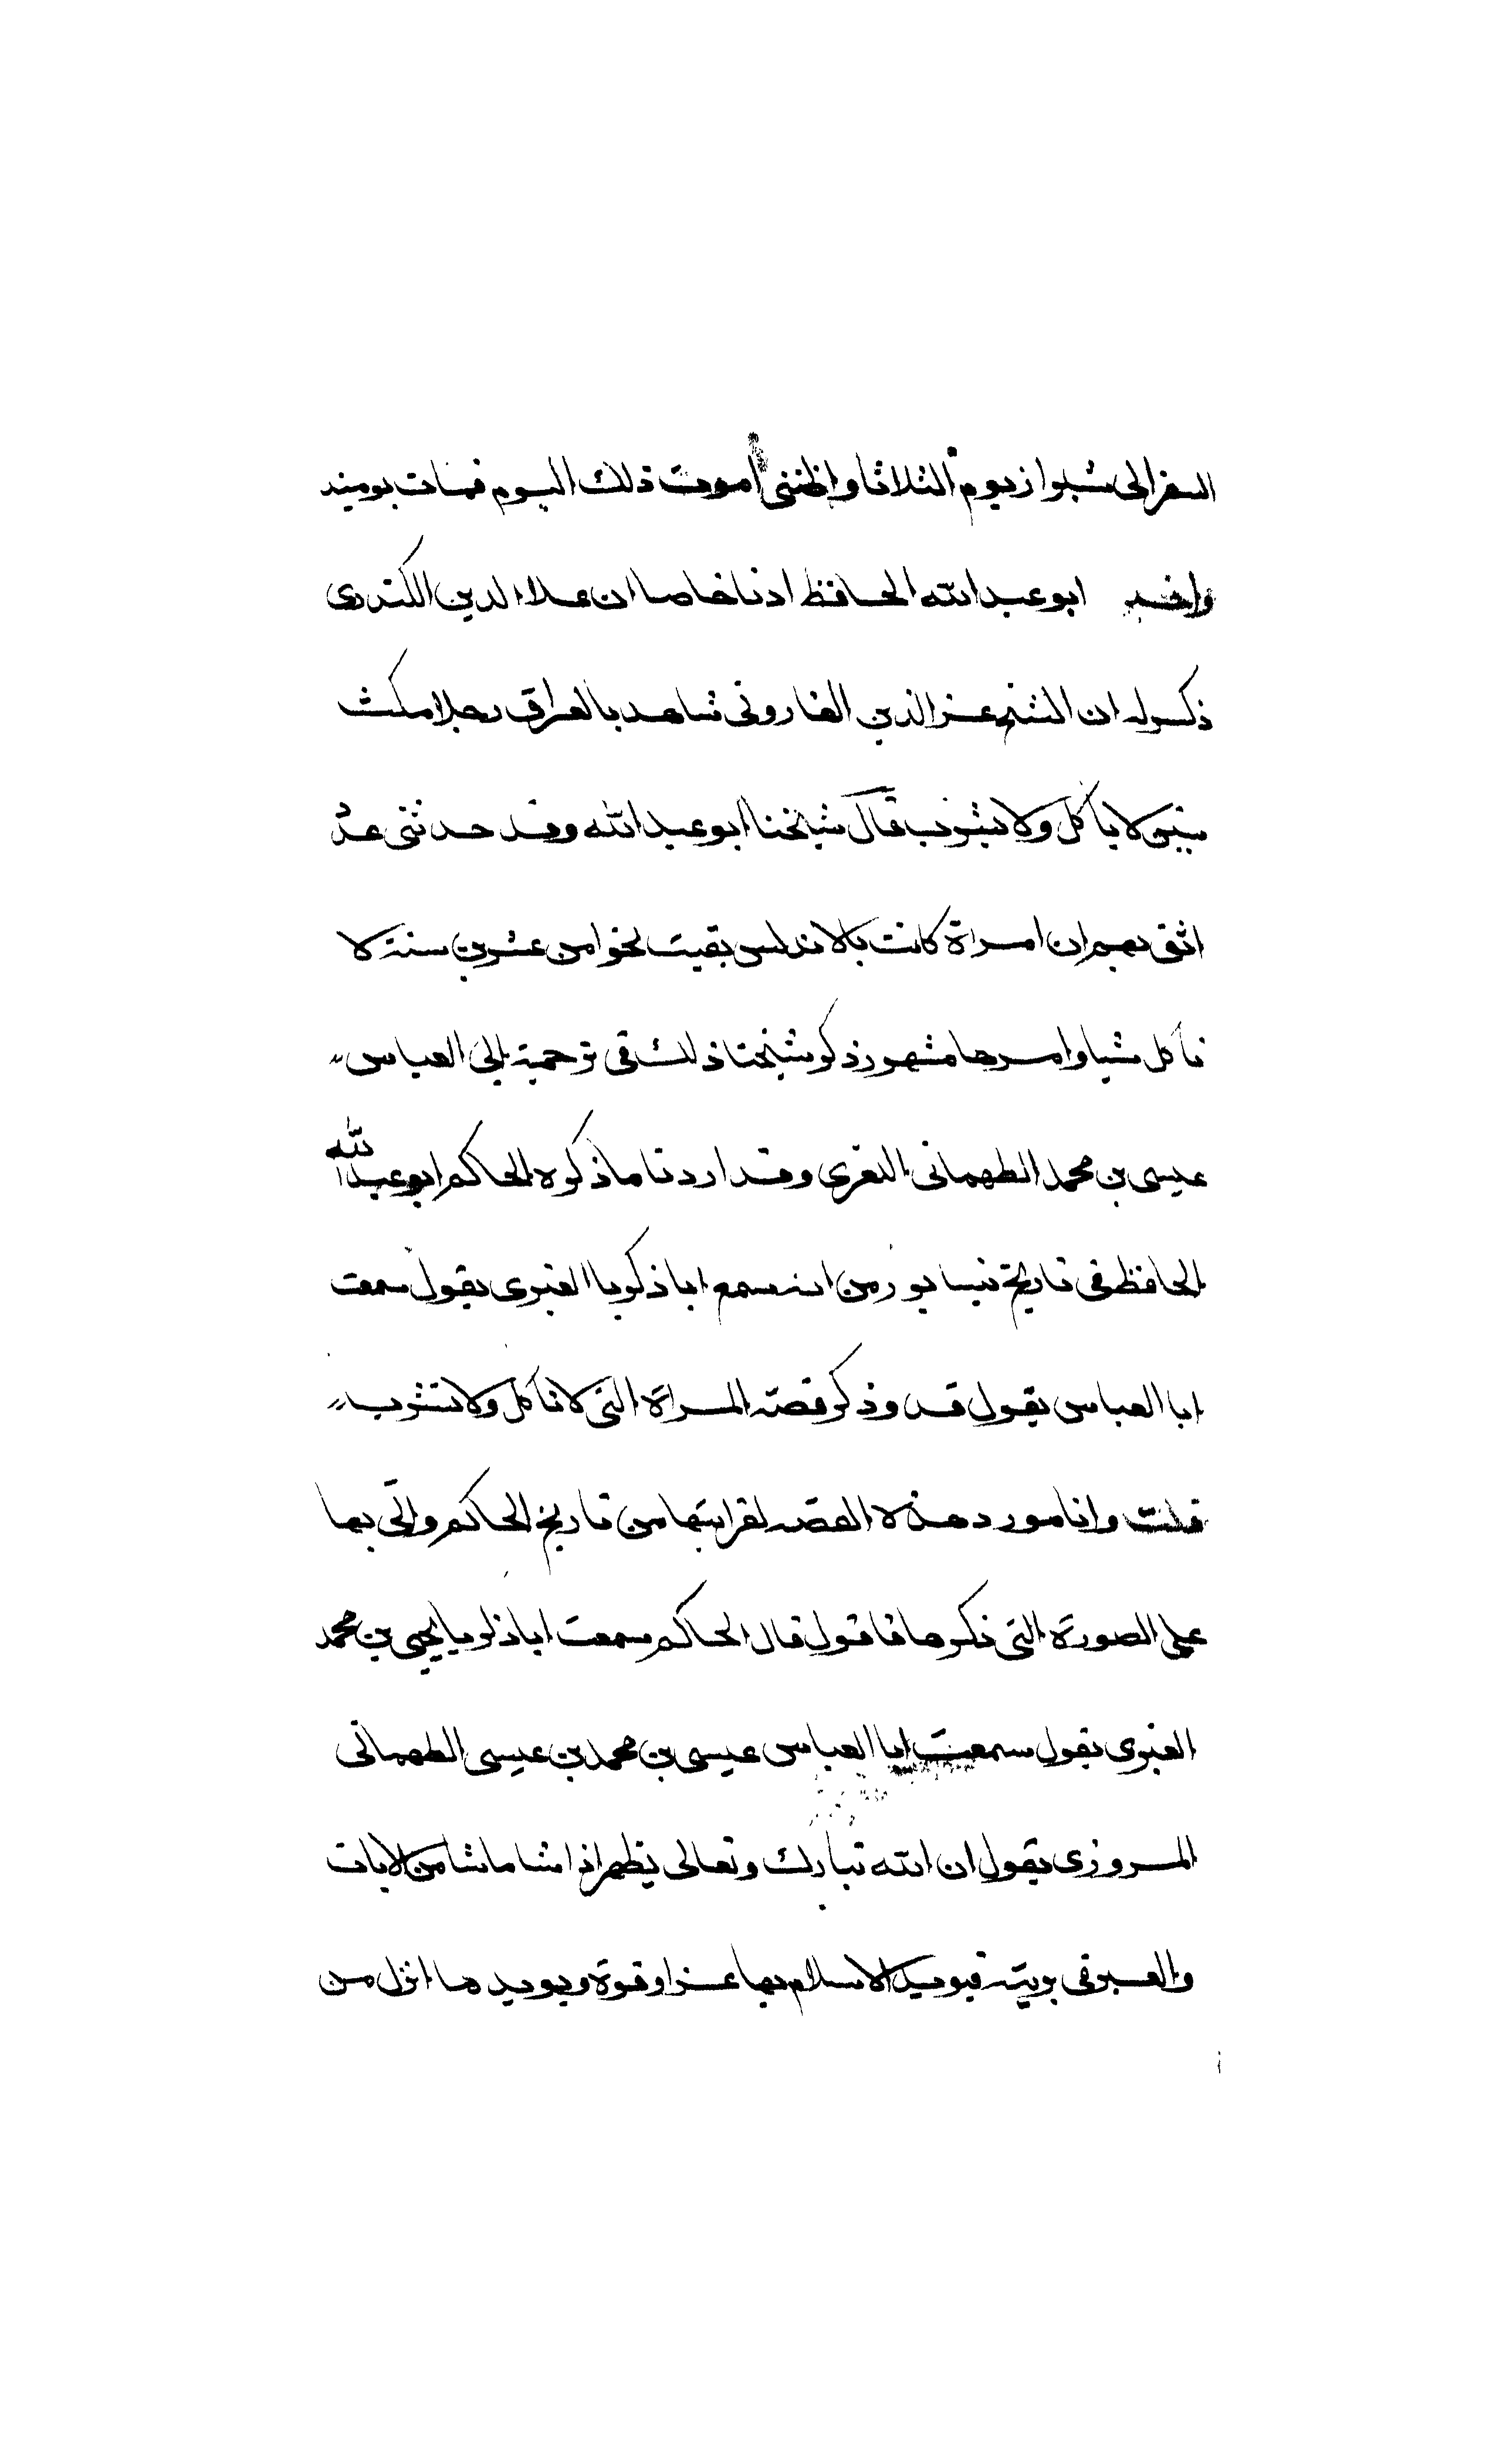 السفر الى شيراز يوم الثلاثا واظننى اموت ذلك اليوم فمات يوميذ
واخبر ابو عبد الله الحافظ اذنا خاصا ان علاء الدين الكندى
ذكر له ان الشيخ عز الدين الفاروثى شاهد بالعراق رجلا مكث
سنين لا ياكل ولا يشرب قال شيخنا ابو عبد الله وقد حدثنى عدد
اثق بهم ان امراة كانت بالاندلس بقيت نحوا من عشرين سنة لا
تاكل شيا وامرها مشهور ذكر شيخنا ذلك فى ترجمة ابى العباس
عيسى بن محمد الطهمانى اللغوى وقد اردنا ما ذكره الحاكم ابو عبد الله
الحافظ فى تاريخ نيسابور من انه سمع ابا زكريا العنبرى يقول سمعت
ابا العباس يقول قد وذكر قصة المراة التى لا تاكل ولا تشرب
قلت وانا مورد هذه القصه لغرابتها من تاريخ الحاكم واتى بها
على الصورة التى ذكرها فاقول قال الحاكم سمعت ابا زكريا يحيى بن محمد
العنبرى يقول سمعت ابا العباس عيسى بن محمد بن عيسى الطهمانى
المروزى يقول ان الله تبارك وتعالى يظهر اذا شا ما شا من الايات
والعبر فى بريته فيويد الاسلام بها عزا وقوة ويويد ما انزل من